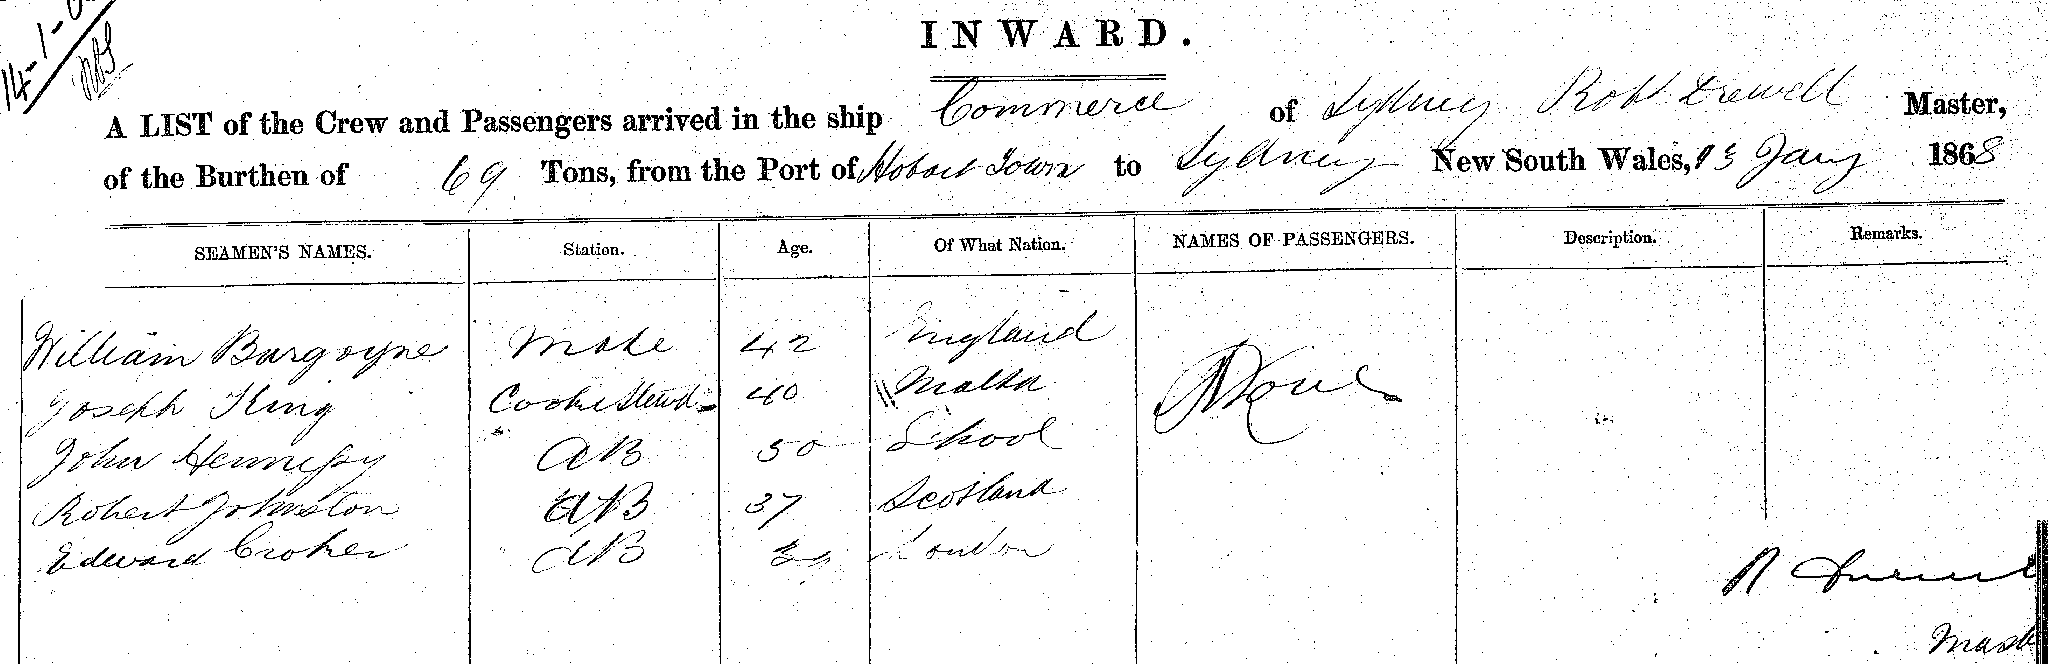 14-1-
INWARD.
A LIST of the Crew and Passengers arrived in the ship Commerce of Sydney Robt Drewell Master,
of the Burthen of 69 Tons, from the Port of Hobart Town to Sydney New South Wales, 13 Jany 1868
SEAMEN'S NAMES. Station. Age. Of What Nation. NAMES OF PASSENGERS. Description. Remarks.
William Burgoyne Mate 42 England
Joseph King Cook & Stewd 40 Malta
John Hennessy AB 50
Robert Johnston AB 37 Scotland
Edward Croker AB London
R
Mast